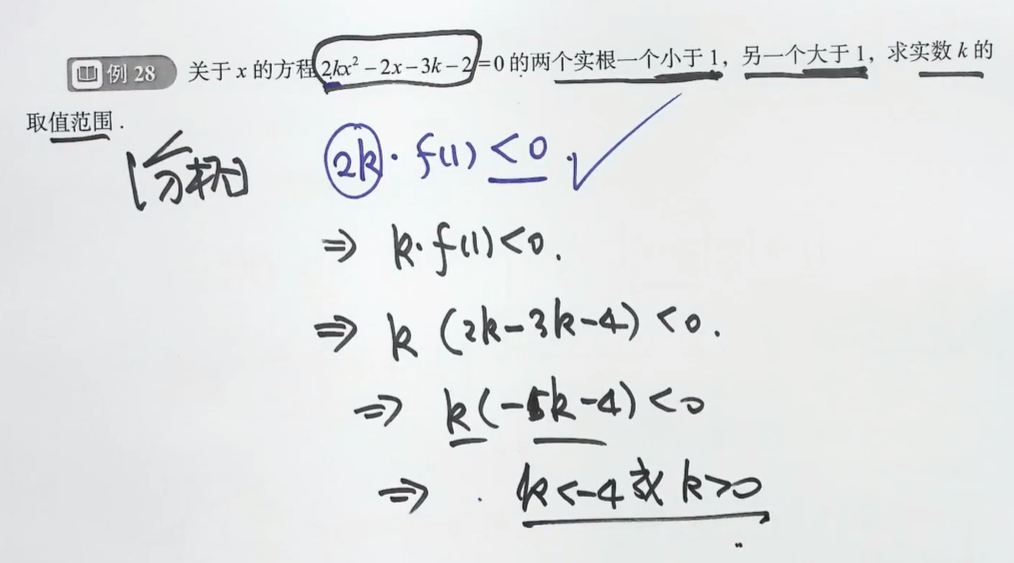 例 28 关于 x 的方程 2kx² − 2x − 3k − 2 = 0 的两个实根一个小于 1，另一个大于 1，求实数 k 的
取值范围．
[分析] 2k · f(1) < 0 .
⇒ k · f(1) < 0 .
⇒ k (2k − 3k − 4) < 0 .
⇒ k (− k − 4) < 0
⇒ k < −4 或 k > 0